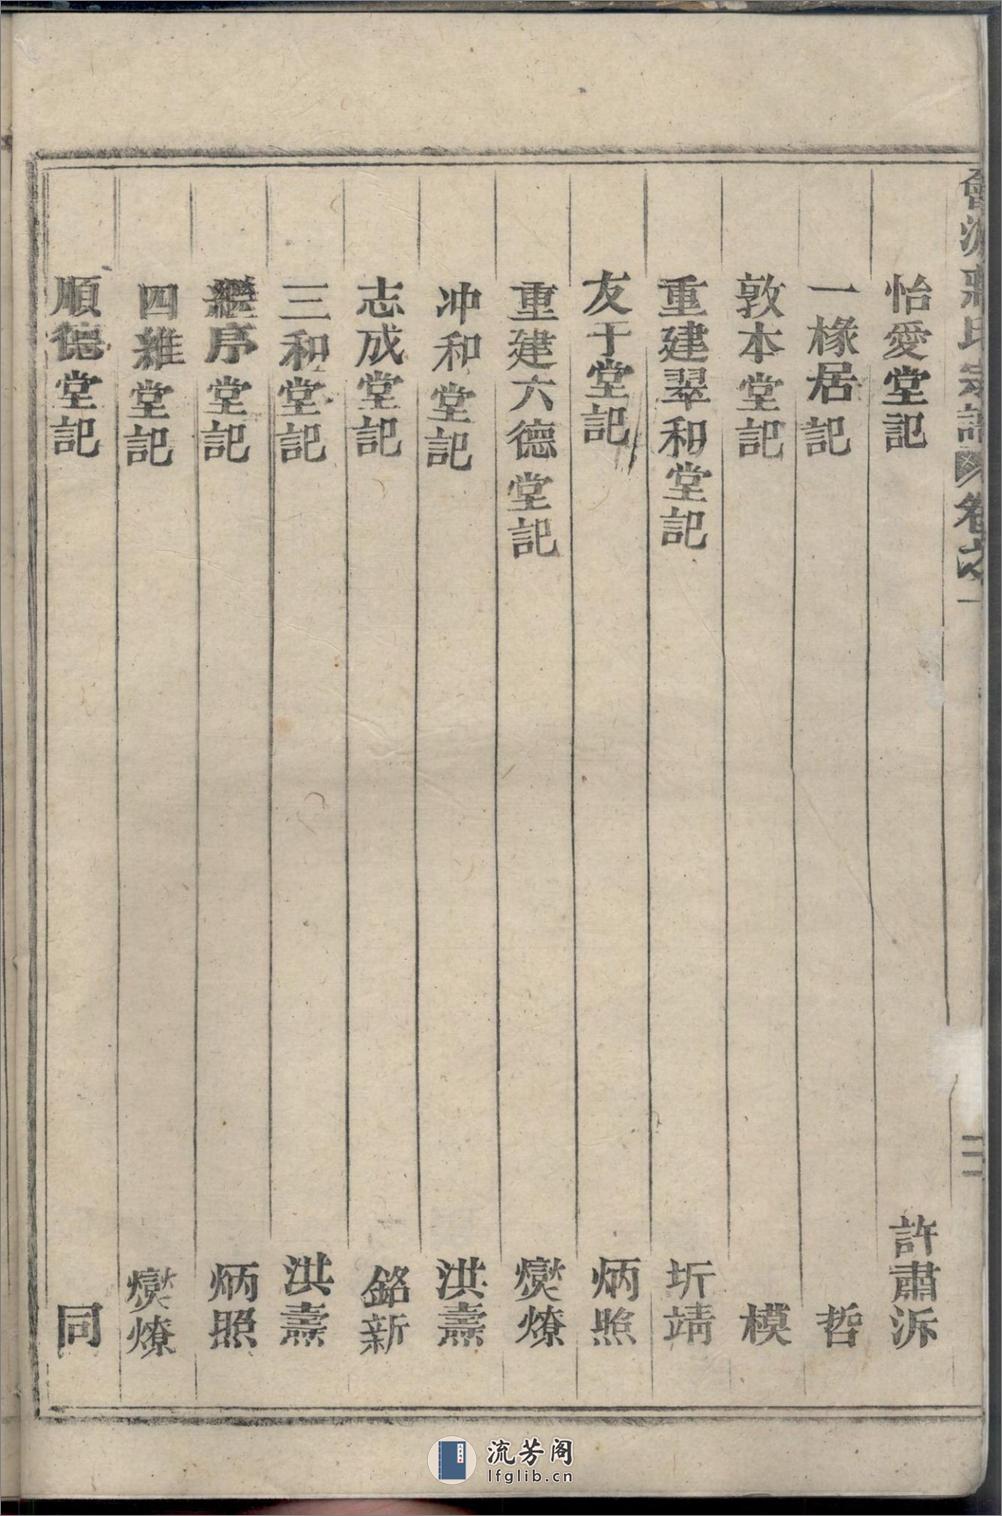 怡愛堂記 許肅泝
一椽居記 哲
敦本堂記 模
重建翠和堂記 圻靖
友于堂記 炳照
重建六德堂記 爕燎
冲和堂記 洪燾
志成堂記 銘新
三和堂記 洪燾
繼序堂記 炳照
四維堂記 爕燎
順德堂記 同
流芳阁
lfglib.cn